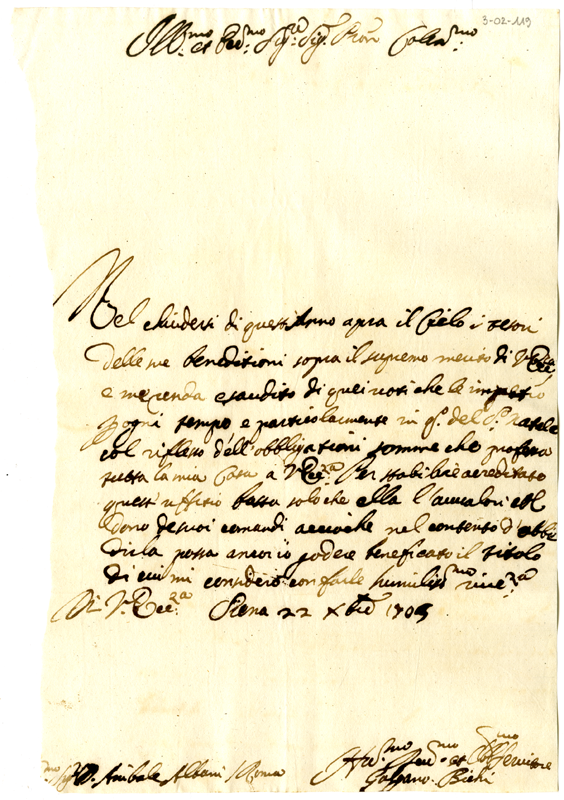 3-02-119
Ill.mo et Rev.mo Sig.re Sig. Pron Colen.mo
Nel chiudersi di quest'Anno apra il Cielo i tesori
delle sue beneditioni sopra il supremo merito di V. Ecc.za
e me renda esaudito di quei voti che le
ogni tempo e particolarmente in q.o del S. Natale
col riflesso dell'obbligationi somme che professa
tutta la mia Casa a V. Ecc.za Per stabilire accreditato
quest'uffitio basta solo che ella l'avvalori col
dono de suoi comandi accioche nel contento d'obbe
dirla possa ancor io godere beneficato il titolo
di cui mi considero con farle humiliss.mo rive.za
Di V. Ecc.za Siena 22 Xbre
Sig. D. Anibale Albani Roma
Hu.mo Dev.mo et Obb. Servitore
Galgano Bichi